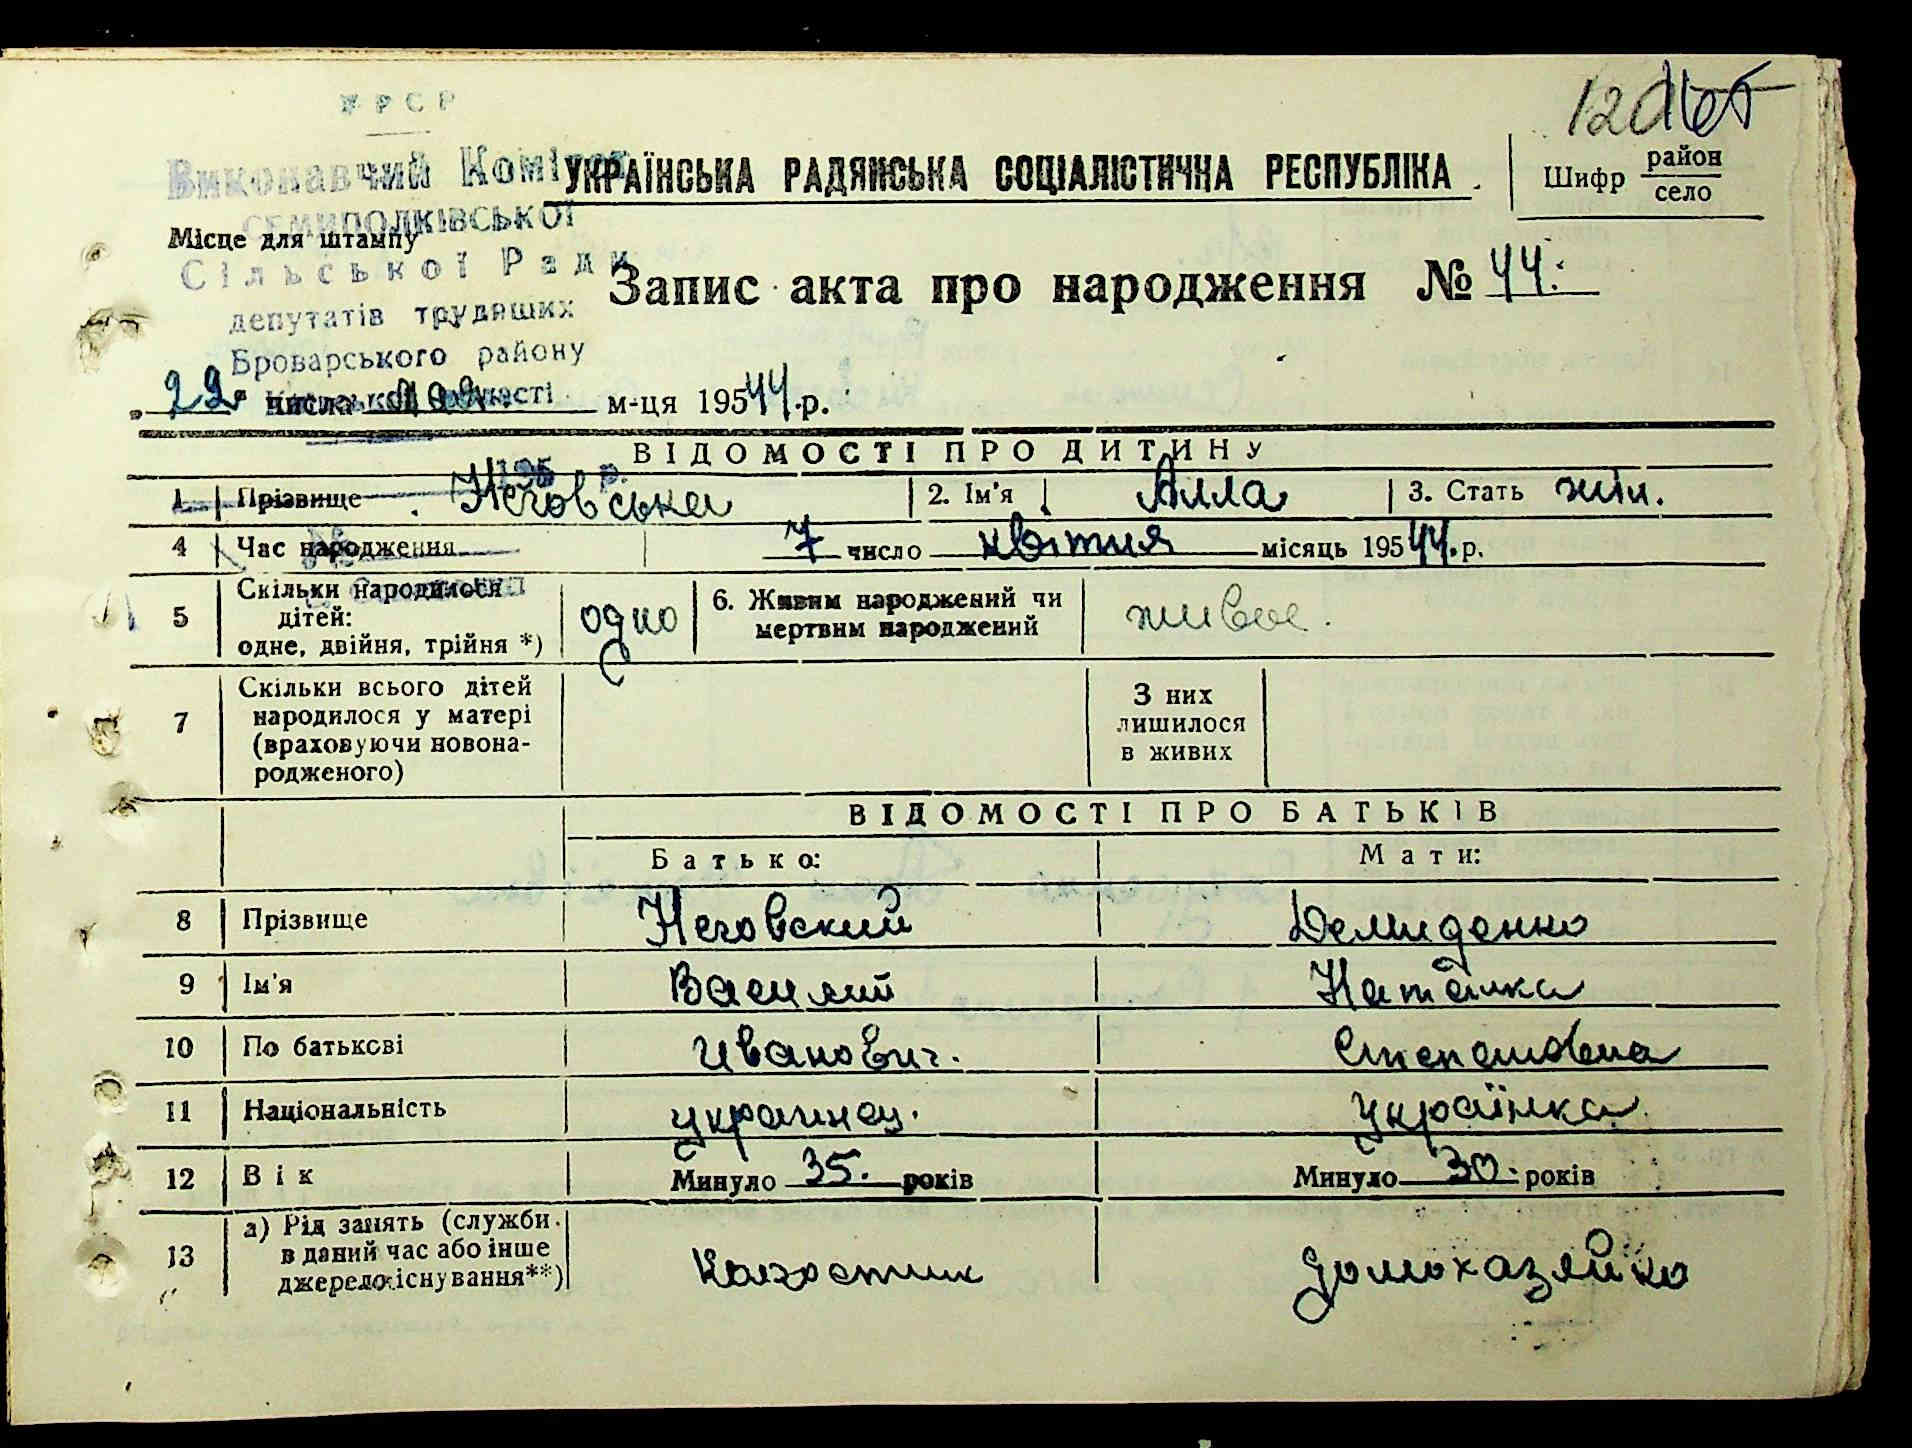 УРСР
Виконавчий Комітет
СЕМИПОЛКІВСЬКОЇ
Сільської Ради
депутатів трудящих
Броварського району
Київської області
195 р.
№
120
УКРАЇНСЬКА РАДЯНСЬКА СОЦІАЛІСТИЧНА РЕСПУБЛІКА
Шифр район
село
Місце для штампу
Запис акта про народження № 44.
"22" числа м-ця 19544 р.
ВІДОМОСТІ ПРО ДИТИНУ
1 Прізвище Неговська 2. Ім'я Алла 3. Стать жін.
4 Час народження 7 число квітня місяць 19544 р.
5 Скільки народилося
дітей:
одне, двійня, трійня *) одно 6. Живим народжений чи
мертвим народжений живое.
7 Скільки всього дітей
народилося у матері
(враховуючи новона-
родженого)
З них
лишилося
в живих
ВІДОМОСТІ ПРО БАТЬКІВ
Батько: Мати:
8 Прізвище Неговский Демиденко
9 Ім'я Василий Наталка
10 По батькові Иванович. Степановна
11 Національність украинец. українка
12 Вік Минуло 35. років Минуло 30. років
13 а) Рід занять (служби
в даний час або інше
джерело існування**) Колхостник домохазяйка